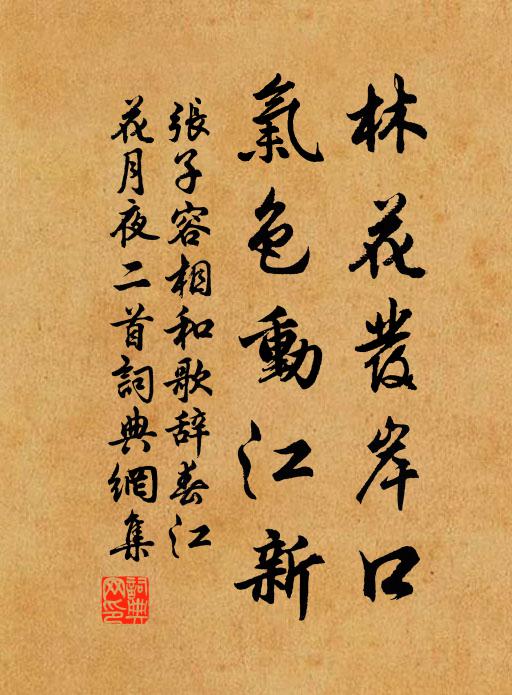 林花發岸口
氣色動江新
張子容相和歌辞春江
花月夜二首詞典網集
詞典网印